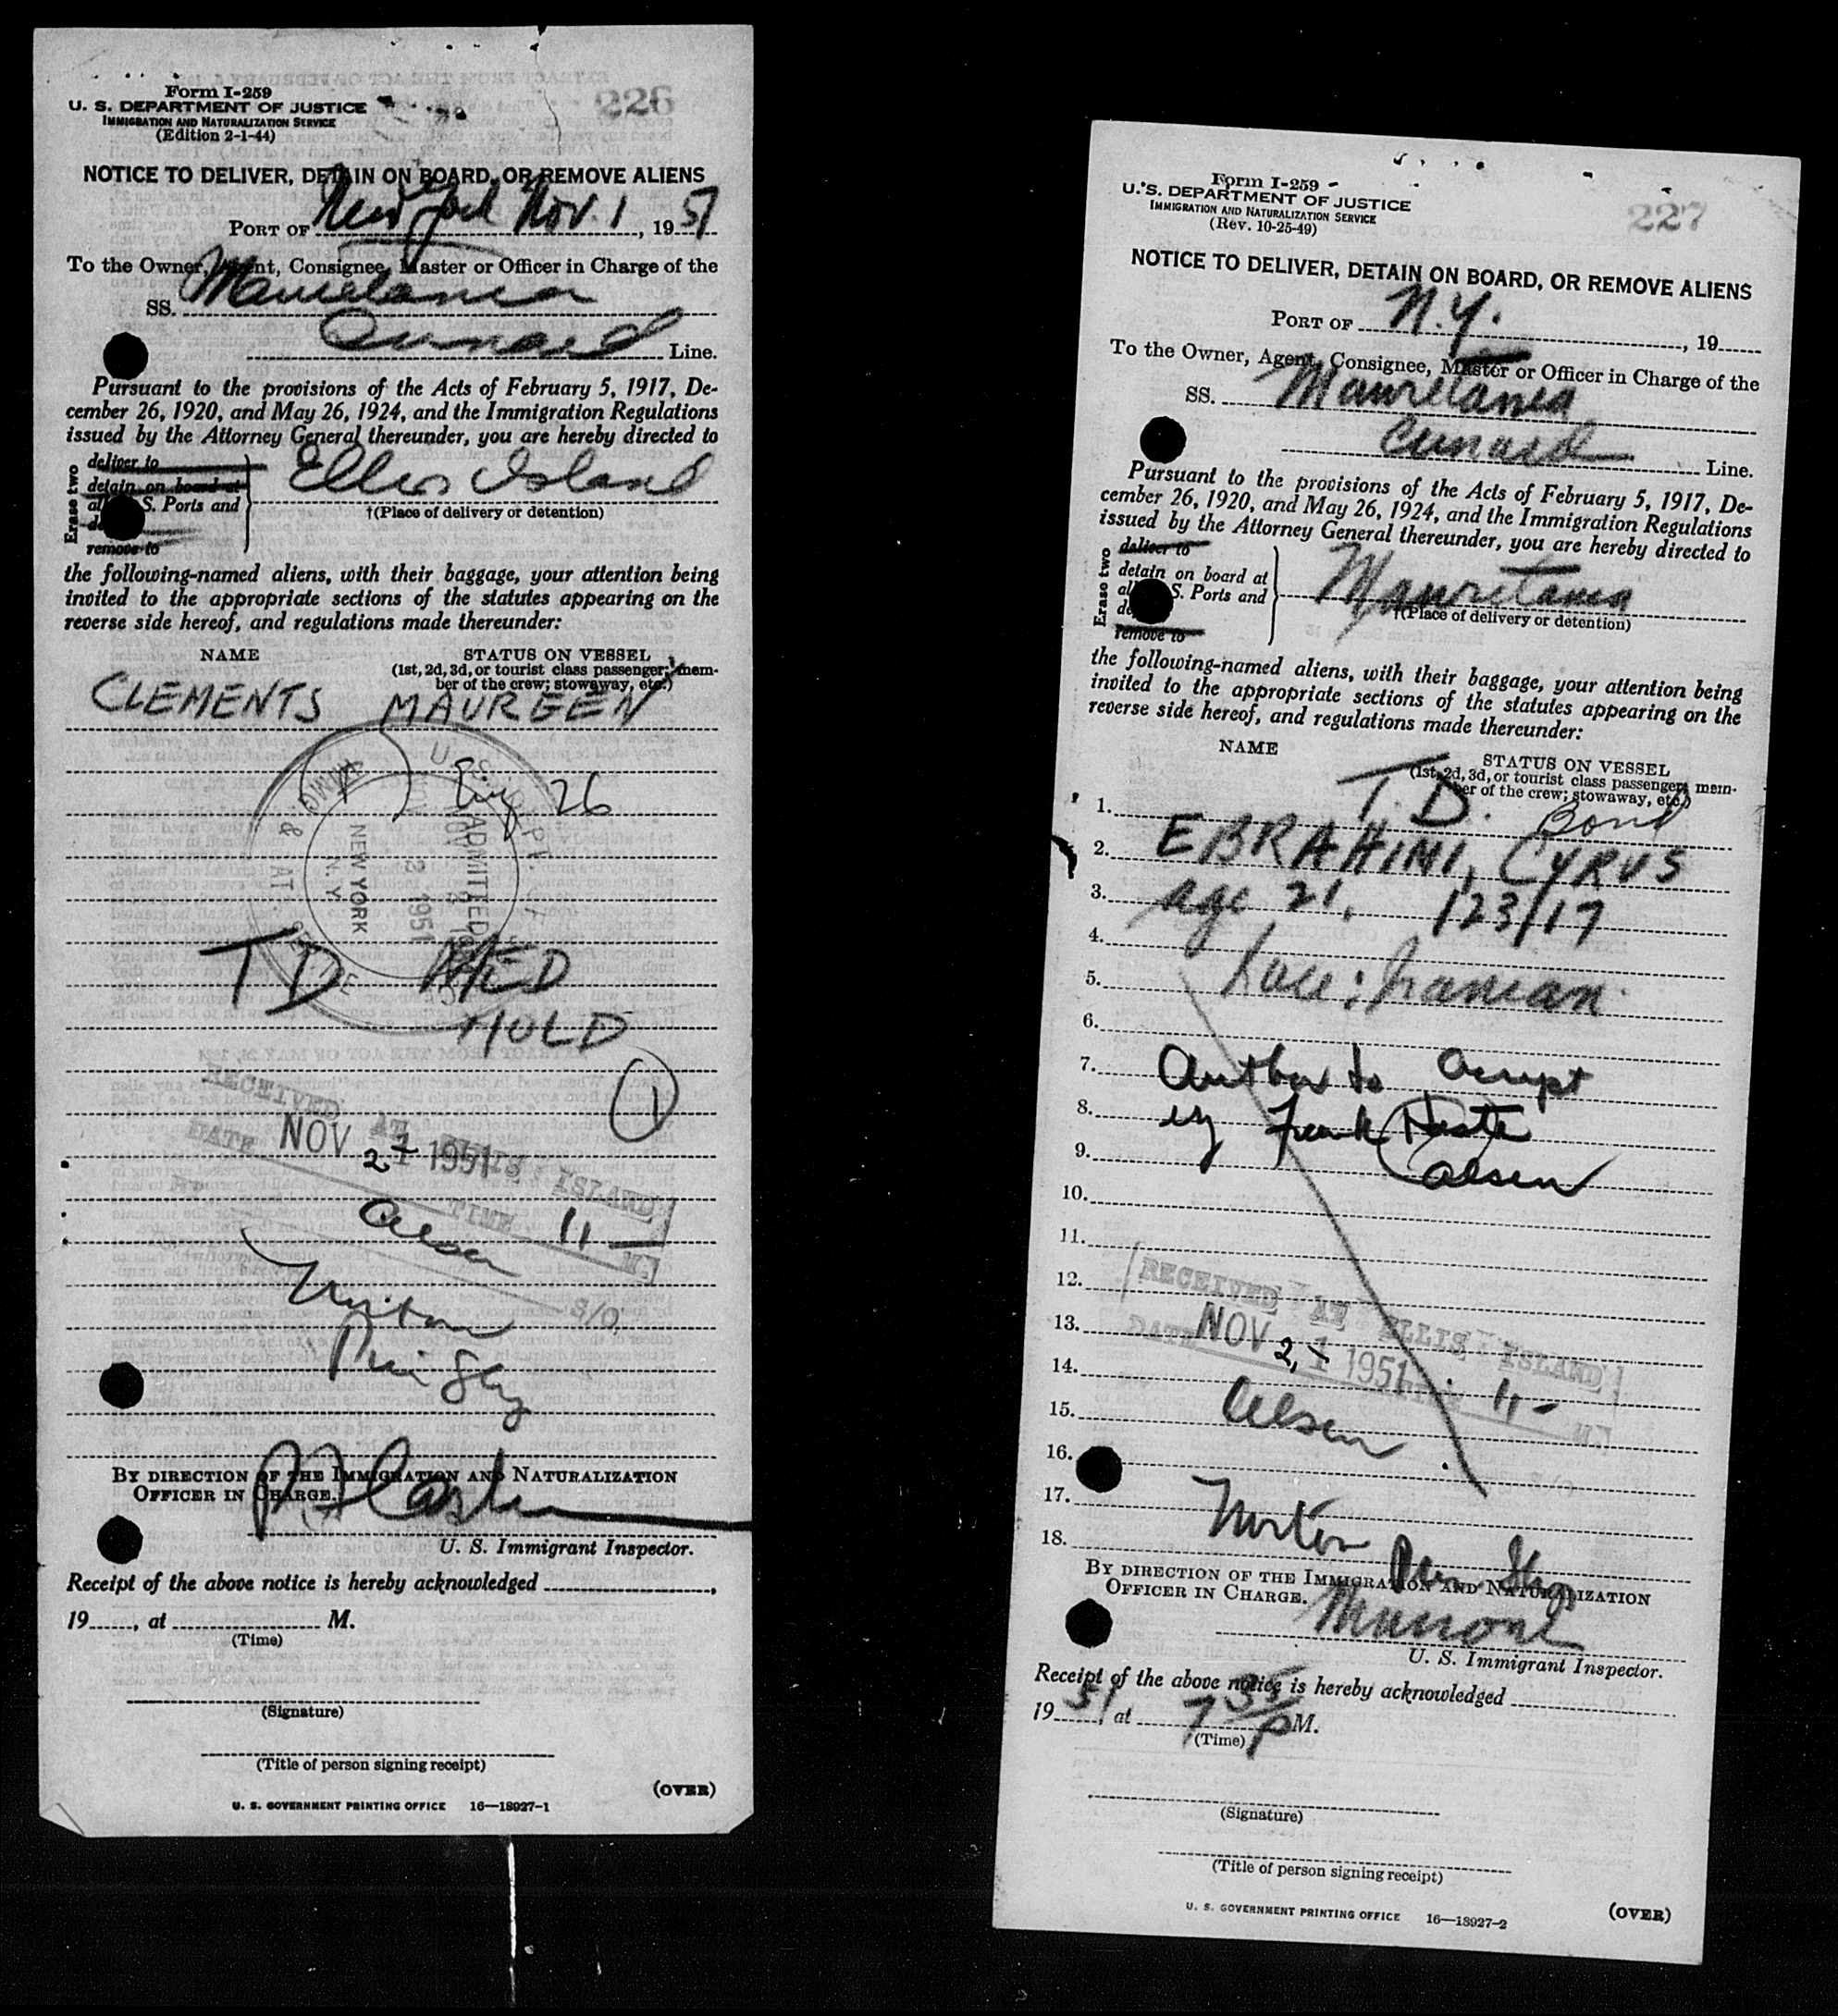 Form I-259
U. S. DEPARTMENT OF JUSTICE
IMMIGRATION AND NATURALIZATION SERVICE
(Edition 2-1-44)
226
NOTICE TO DELIVER, DETAIN ON BOARD, OR REMOVE ALIENS
PORT OF New York Nov. 1, 1951
To the Owner, Agent, Consignee, Master or Officer in Charge of the
SS. Mauretania
Cunard Line.
Pursuant to the provisions of the Acts of February 5, 1917, De-
cember 26, 1920, and May 26, 1924, and the Immigration Regulations
issued by the Attorney General thereunder, you are hereby directed to
Erase two
deliver to
detain on board at
all S. Ports and
remove to
Ellis Island
†(Place of delivery or detention)
the following-named aliens, with their baggage, your attention being
invited to the appropriate sections of the statutes appearing on the
reverse side hereof, and regulations made thereunder:
NAME STATUS ON VESSEL
(1st, 2d, 3d, or tourist class passenger; mem-
ber of the crew; stowaway, etc.)
CLEMENTS MAUREEN
26
ADMITTED
NEW YORK
N. Y.
2 1951
TD MED
HOLD
1
RECEIVED AT ELLIS ISLAND
DATE NOV 2 1 1951 TIME 11 — M.
Olsen
S/O
Norton
BY DIRECTION OF THE IMMIGRATION AND NATURALIZATION
OFFICER IN CHARGE.
U. S. Immigrant Inspector.
Receipt of the above notice is hereby acknowledged
19, at M.
(Time)
(Signature)
(Title of person signing receipt)
(OVER)
U. S. GOVERNMENT PRINTING OFFICE 16—18927-1
Form I-259
U. S. DEPARTMENT OF JUSTICE
IMMIGRATION AND NATURALIZATION SERVICE
(Rev. 10-25-49)
227
NOTICE TO DELIVER, DETAIN ON BOARD, OR REMOVE ALIENS
PORT OF N.Y., 19
To the Owner, Agent, Consignee, Master or Officer in Charge of the
SS. Mauretania
Cunard Line.
Pursuant to the provisions of the Acts of February 5, 1917, De-
cember 26, 1920, and May 26, 1924, and the Immigration Regulations
issued by the Attorney General thereunder, you are hereby directed to
Erase two
deliver to
detain on board at
all S. Ports and
remove to
Mauretania
†(Place of delivery or detention)
the following-named aliens, with their baggage, your attention being
invited to the appropriate sections of the statutes appearing on the
reverse side hereof, and regulations made thereunder:
NAME STATUS ON VESSEL
(1st, 2d, 3d, or tourist class passenger; mem-
ber of the crew; stowaway, etc.)
1. T. D. Bond
2. EBRAHIMI, CYRUS
3. age 21. 123/17
4.
5. Race: Iranian
6.
7. Author to accept
8. by Frank
9. Olsen
10.
11.
12.
RECEIVED AT ELLIS ISLAND
13.
DATE NOV 2, 1 1951 11 - M.
14.
15. Olsen
16.
17.
18. Norton
BY DIRECTION OF THE IMMIGRATION AND NATURALIZATION
OFFICER IN CHARGE.
U. S. Immigrant Inspector.
Receipt of the above notice is hereby acknowledged
1951, at 7 35 P M.
(Time)
(Signature)
(Title of person signing receipt)
U. S. GOVERNMENT PRINTING OFFICE 16—18927-2
(OVER)